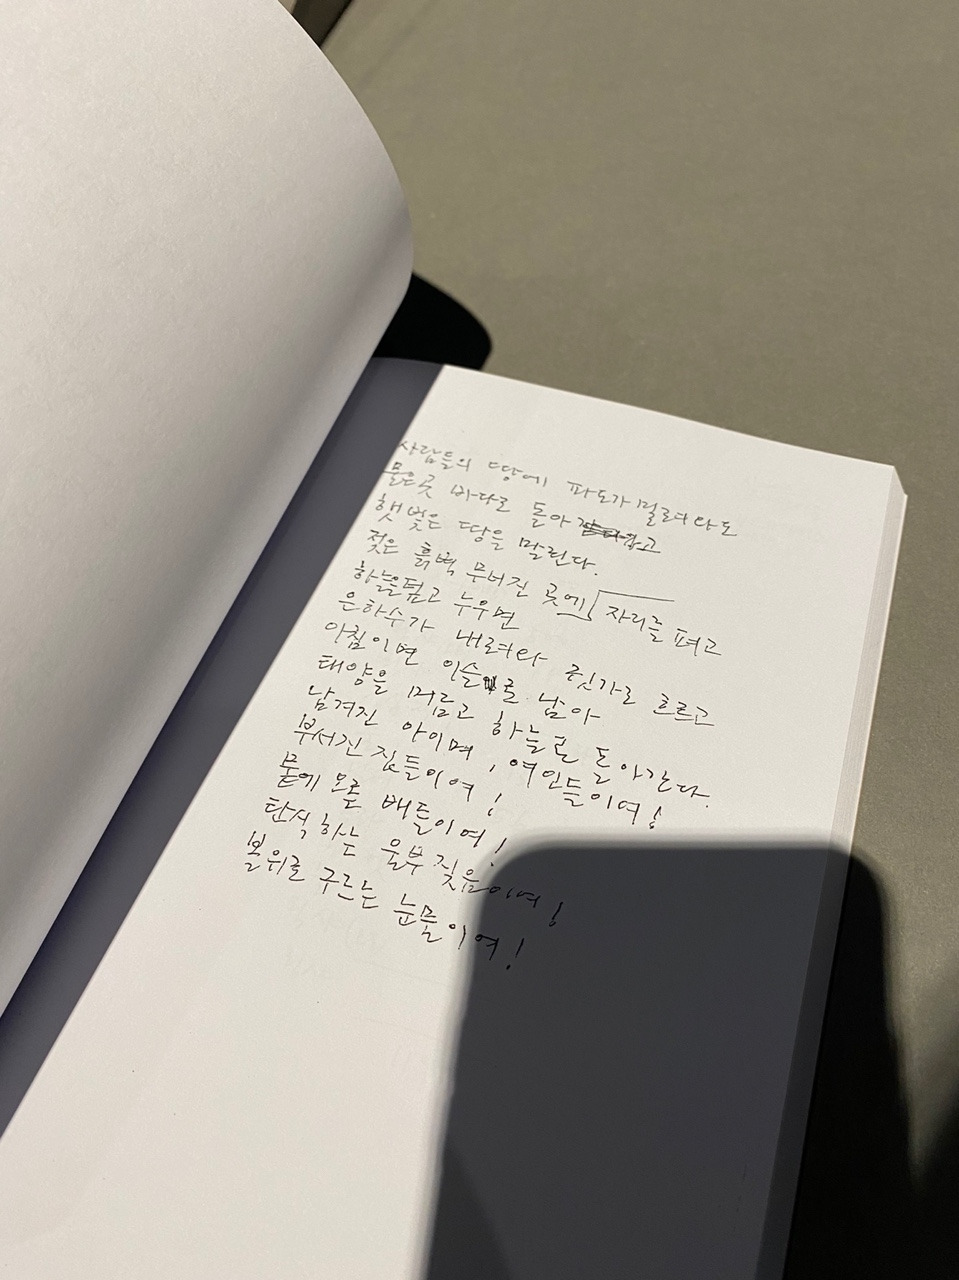 사람들의 땅에 파도가 밀려와도
물은 곳 바다로 돌아가고
햇볕은 땅을 말린다.
젖은 흙벽 무너진 곳에 자리를 펴고
하늘을 덮고 누우면
은하수가 내려와 귓가로 흐르고
아침이면 이슬로 남아
태양을 머금고 하늘로 돌아간다.
남겨진 아이며, 여인들이여!
부서진 집들이여!
뭍에 오른 배들이여!
탄식하는 울부짖음이여!
볼위로 구르는 눈물이여!